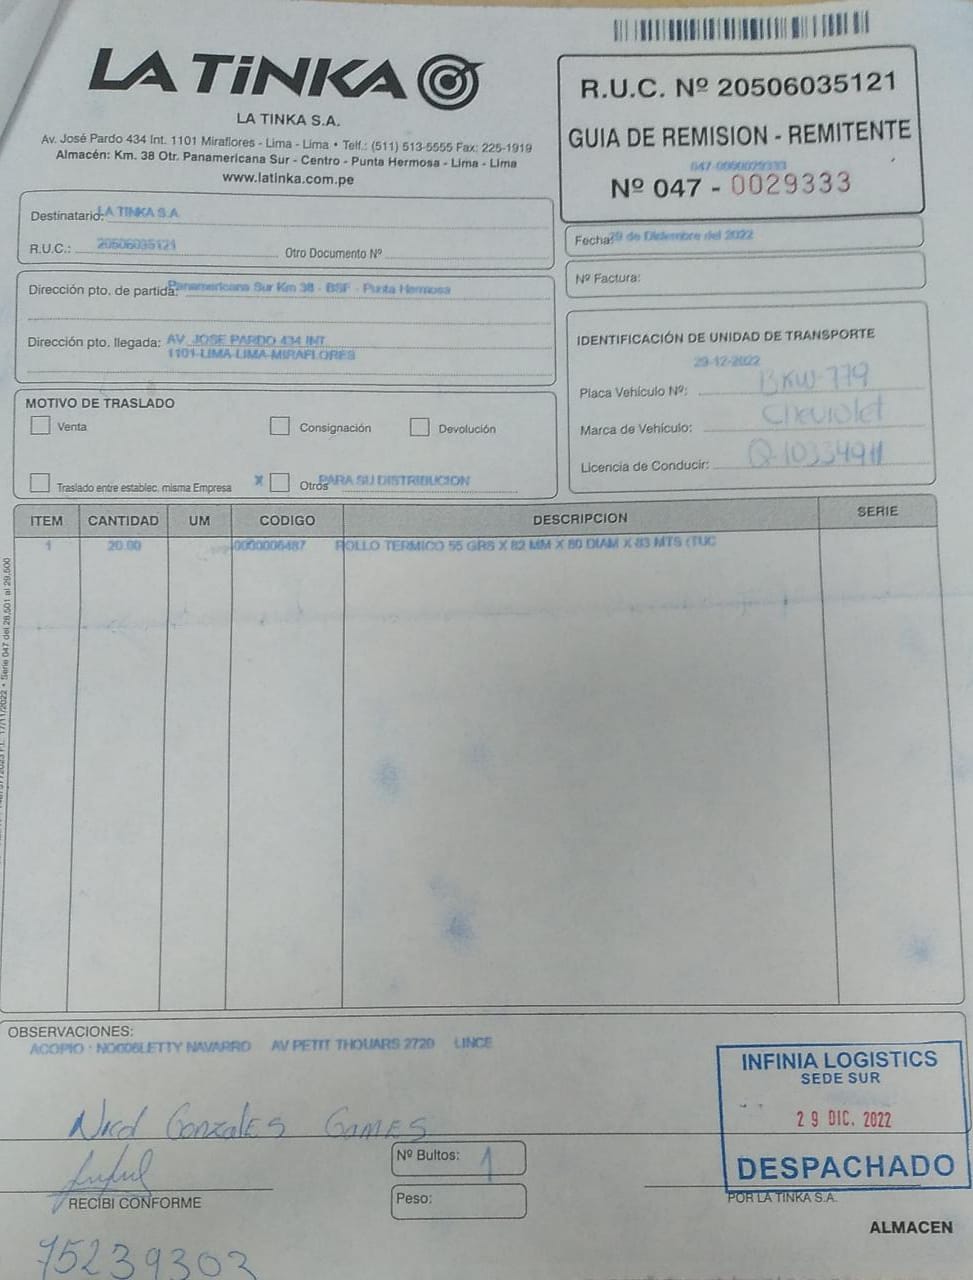 LA TiNKA
LA TINKA S.A.
Av. José Pardo 434 Int. 1101 Miraflores - Lima - Lima • Telf.: (511) 513-5555 Fax: 225-1919
Almacén: Km. 38 Otr. Panamericana Sur - Centro - Punta Hermosa - Lima - Lima
www.latinka.com.pe
R.U.C. Nº 20506035121
GUIA DE REMISION - REMITENTE
047-0000029333
Nº 047 - 0029333
Destinatario: LA TINKA S.A
R.U.C.: 20506035121 Otro Documento Nº
Fecha: 29 de Diciembre del 2022
Nº Factura:
Dirección pto. de partida: Panamericana Sur Km 38 - BSF - Punta Hermosa
Dirección pto. llegada: AV. JOSE PARDO 434 INT.
1101-LIMA-LIMA-MIRAFLORES
IDENTIFICACIÓN DE UNIDAD DE TRANSPORTE
29-12-2022
Placa Vehículo Nº: BKW-779
Marca de Vehículo: Chevrolet
Licencia de Conducir: Q-10334911
MOTIVO DE TRASLADO
Venta Consignación Devolución
Traslado entre establec. misma Empresa X Otros PARA SU DISTRIBUCION
ITEM CANTIDAD UM CODIGO DESCRIPCION SERIE
1 20.00 0000006487 ROLLO TERMICO 55 GRS X 82 MM X 80 DIAM X 83 MTS (TUC
Serie 047 del 28,501 al 29,500
OBSERVACIONES:
ACOPIO : NO006LETTY NAVARRO AV PETIT THOUARS 2720 LINCE
INFINIA LOGISTICS
SEDE SUR
29 DIC. 2022
DESPACHADO
Nicol Gonzales Games
Nº Bultos: 1
RECIBI CONFORME
Peso:
POR LA TINKA S.A.
ALMACEN
75239303